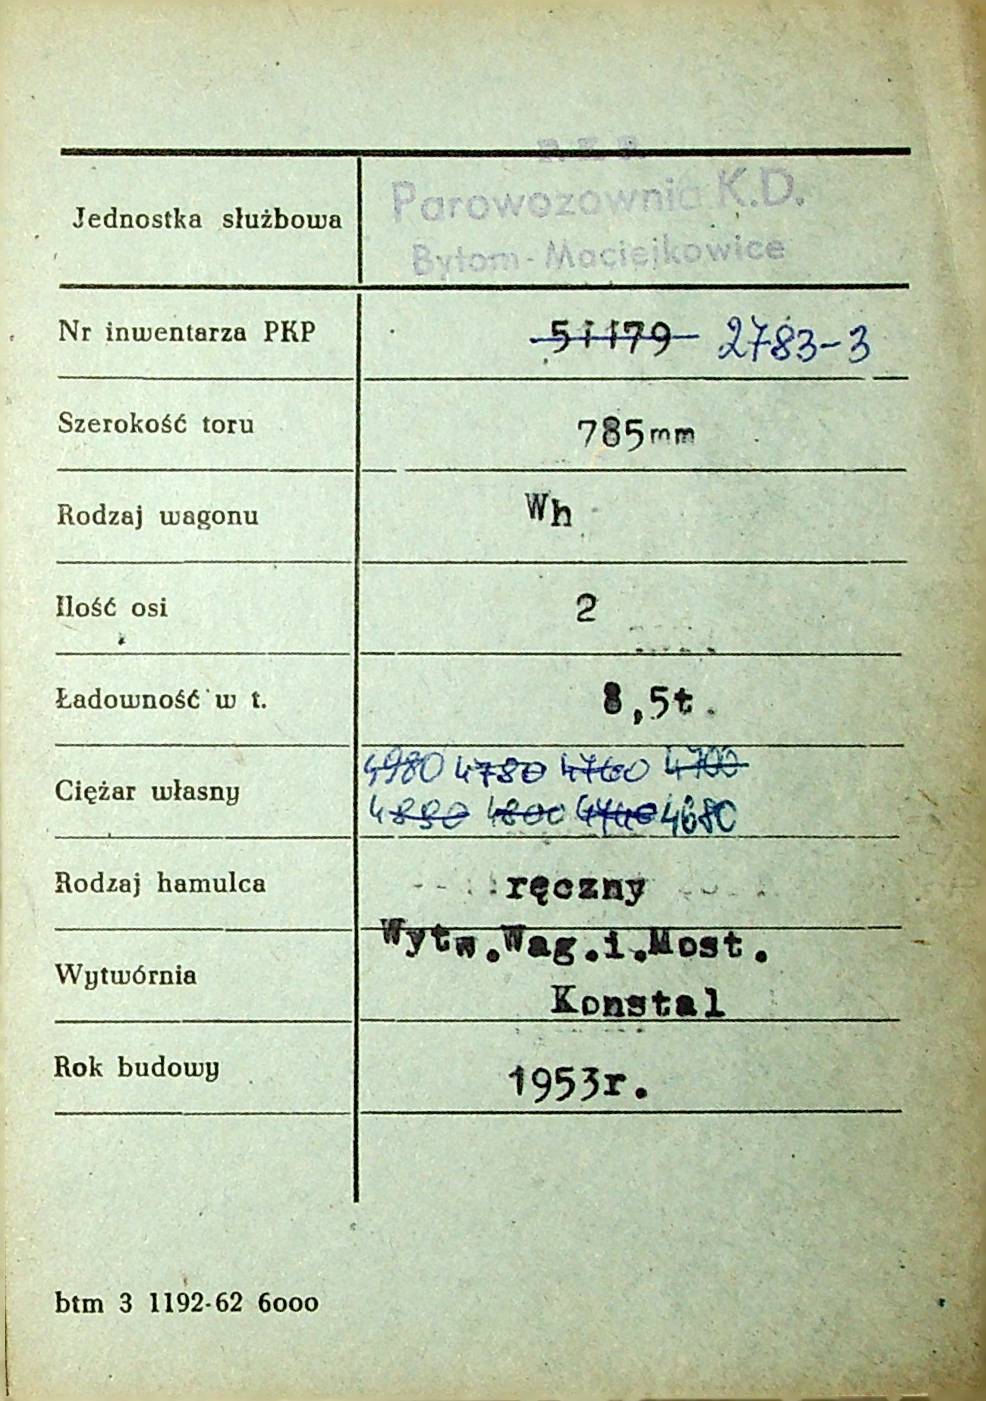 P.K.P.
Parowozownia K.D.
Jednostka służbowa
Bytom-Maciejkowice
Nr inwentarza PKP 51179 2783-3
Szerokość toru 785mm
Rodzaj wagonu Wh
Ilość osi 2
Ładowność w t. 8,5t.
4980 4780 4760 4700
Ciężar własny
4880 4800 4740 4680
Rodzaj hamulca ręczny
Wytw.Wag.i.Most.
Wytwórnia
Konstal
Rok budowy 1953r.
btm 3 1192-62 6000